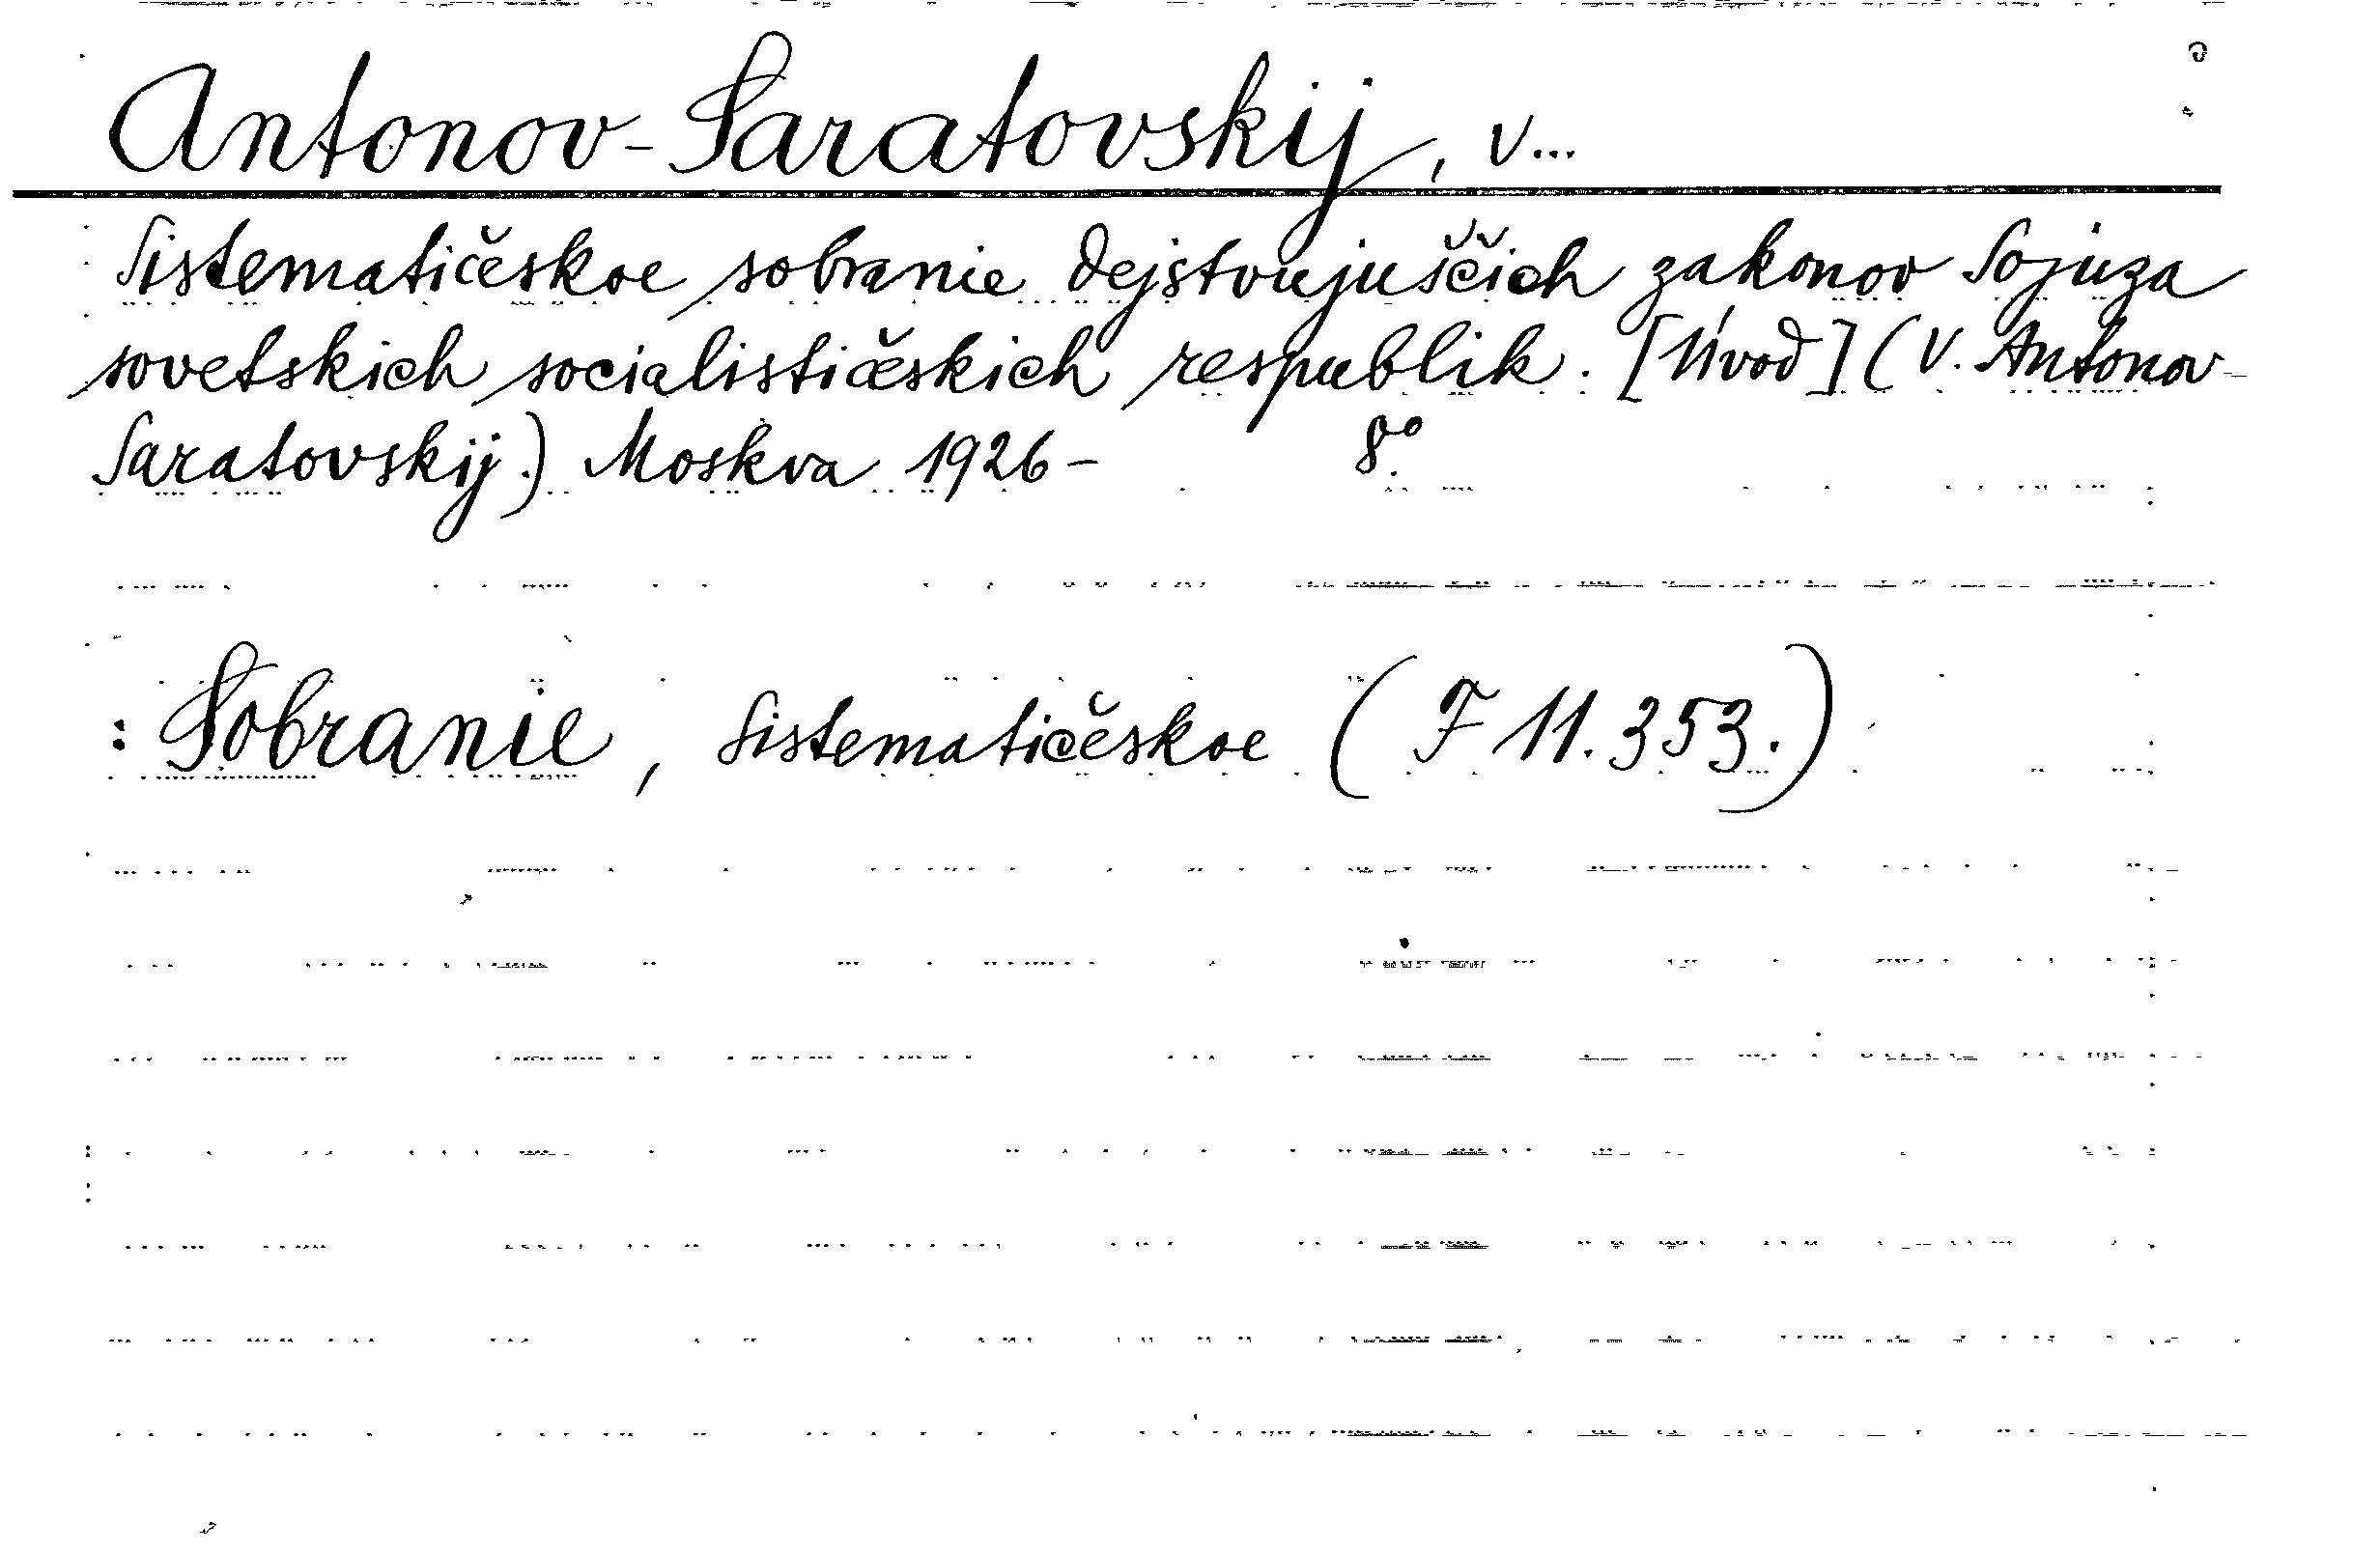 Antonov-Saratovskij, V...
Sistematičeskoe sobranie dejstvujuščich zakonov Sojuza
sovetskich socialističeskich respublik. [Úvod] (V. Antonov-
Saratovskij.) Moskva 1926- 8°.
: Sobranie, Sistematičeskoe (F 11.353.)